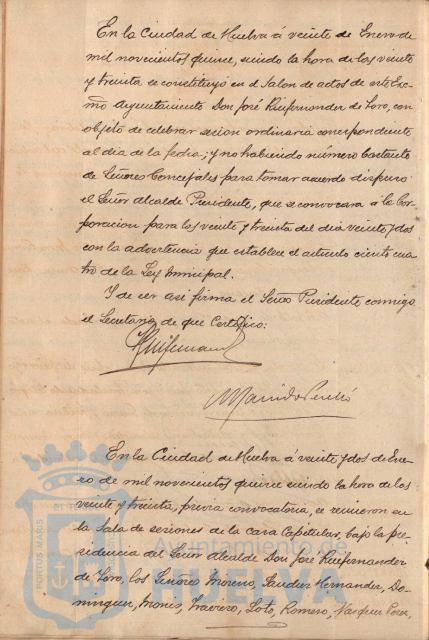 En la Ciudad de Huelva á veinte de Enero de
mil novecientos quince, siendo la hora de las veinte
y treinta se constituyó en el Salon de actos de este Exc-
mo Ayuntamiento Don José Ruifernandez de Toro, con
objeto de celebrar sesion ordinaria correspondiente
al dia de la fecha; y no habiendo número bastante
de Señores Concejales para tomar acuerdo dispuso
el Señor alcalde Presidente, que se convocara á la Cor-
poracion para las veinte y treinta del dia veinte y dos
con la advertencia que establece el articulo ciento cua-
tro de la Ley municipal.
Y de ser asi firma el Señor Presidente conmigo
el Secretario de que Certifico:
En la Ciudad de Huelva á veinte y dos de Ene-
ro de mil novecientos quince siendo la hora de las
veinte y treinta, previa convocatoria, se reunieron en
la Sala de sesiones de la casa Capitular, bajo la pre-
sidencia del Señor Alcalde Don José Ruifernandez
de Toro, los Señores Moreno, Hernandez, Do-
minguez, Monis, Travieso, Soto, Romero, Vazquez Perez,
PORTUS MARIS
Ayuntamiento de
HUELVA